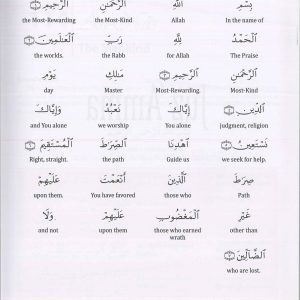 بِسْمِ اللَّهِ الرَّحْمَٰنِ الرَّحِيمِ
In the name of Allah the Most-Kind the Most-Rewarding
الْحَمْدُ لِلَّهِ رَبِّ الْعَالَمِينَ
The Praise for Allah the Rabb the worlds.
الرَّحْمَٰنِ الرَّحِيمِ مَالِكِ يَوْمِ
Most-Kind Most-Rewarding. Master day
الدِّينِ إِيَّاكَ نَعْبُدُ وَإِيَّاكَ
judgment, religion You alone we worship and You alone
نَسْتَعِينُ اهْدِنَا الصِّرَاطَ الْمُسْتَقِيمَ
we seek for help. Guide us the path Right, straight.
صِرَاطَ الَّذِينَ أَنْعَمْتَ عَلَيْهِمْ
Path those who You have favored upon them.
غَيْرِ الْمَغْضُوبِ عَلَيْهِمْ وَلَا
other than those who earned wrath upon them and not
الضَّالِّينَ
who are lost.